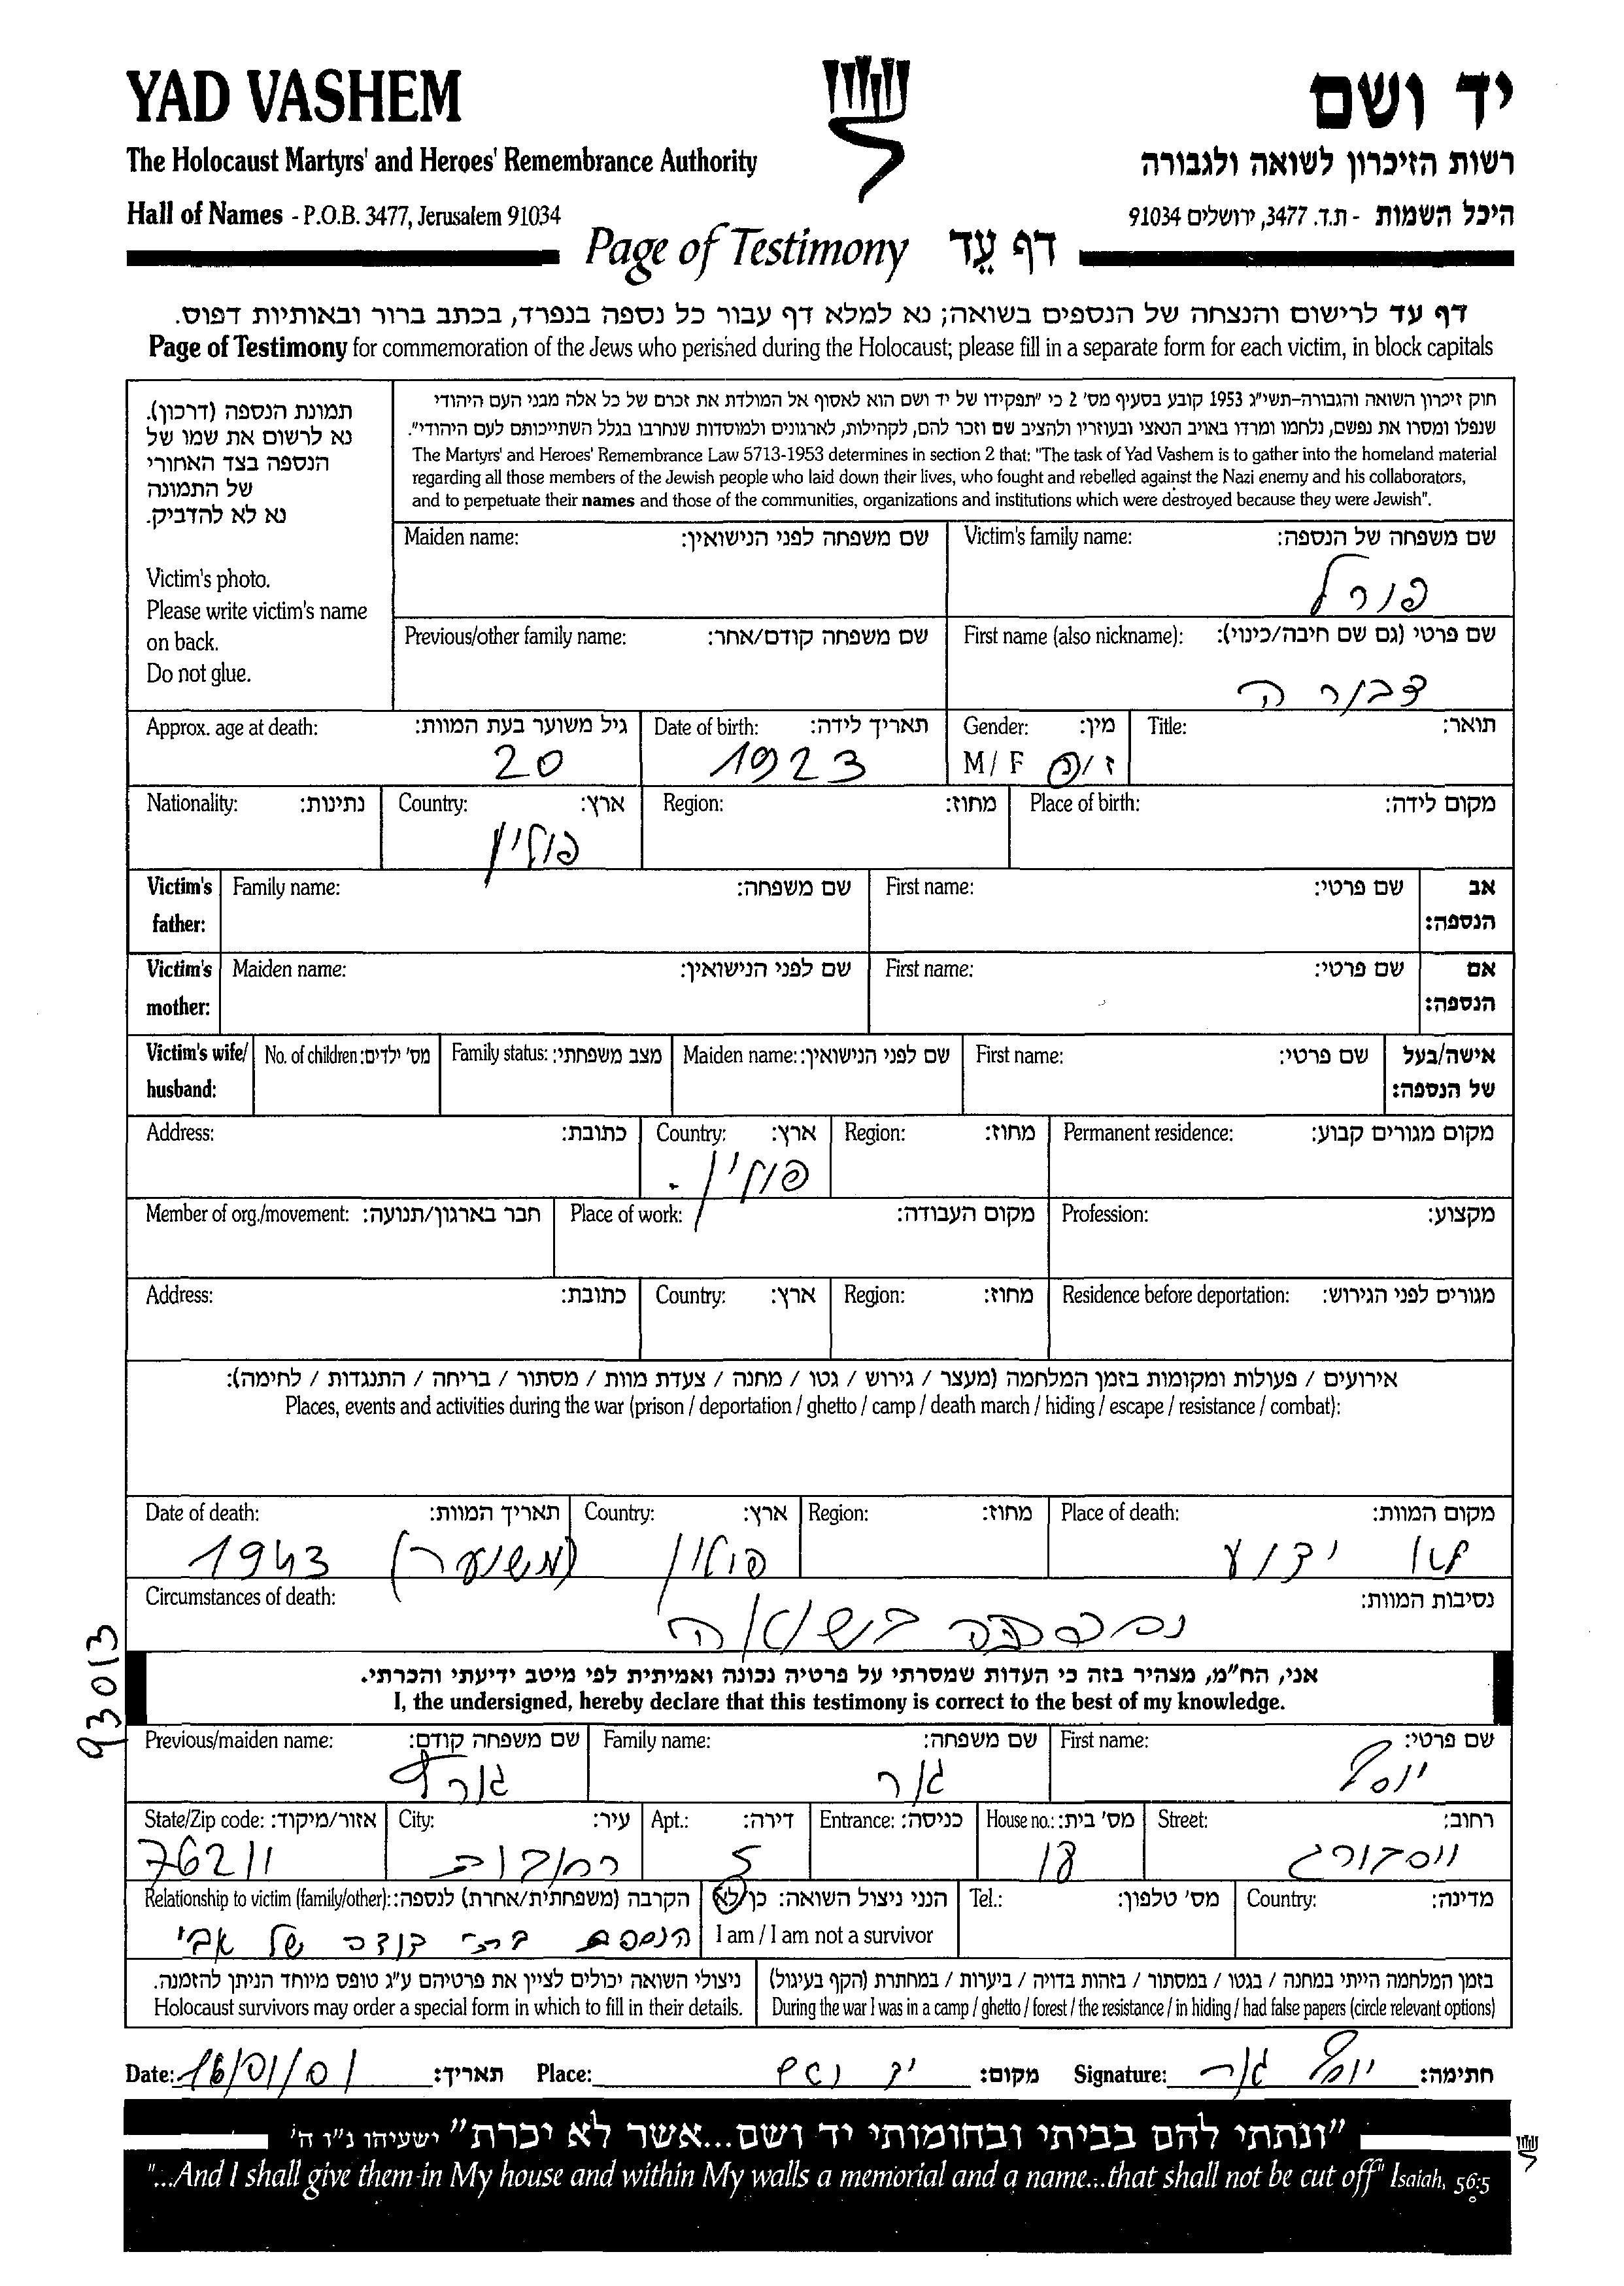 YAD VASHEM
יד ושם
The Holocaust Martyrs' and Heroes' Remembrance Authority
רשות הזיכרון לשואה ולגבורה
Hall of Names - P.O.B. 3477, Jerusalem 91034
היכל השמות - ת.ד. 3477, ירושלים 91034
Page of Testimony דף עֵד
דף עד לרישום והנצחה של הנספים בשואה; נא למלא דף עבור כל נספה בנפרד, בכתב ברור ובאותיות דפוס.
Page of Testimony for commemoration of the Jews who perished during the Holocaust; please fill in a separate form for each victim, in block capitals
תמונת הנספה (דרכון).
נא לרשום את שמו של
הנספה בצד האחורי
של התמונה
נא לא להדביק.
Victim's photo.
Please write victim's name
on back.
Do not glue.
חוק זיכרון השואה והגבורה-תשי"ג 1953 קובע בסעיף מס' 2 כי "תפקידו של יד ושם הוא לאסוף אל המולדת את זכרם של כל אלה מבני העם היהודי
שנפלו ומסרו את נפשם, נלחמו ומרדו באויב הנאצי ובעוזריו ולהציב שם וזכר להם, לקהילות, לארגונים ולמוסדות שנחרבו בגלל השתייכותם לעם היהודי".
The Martyrs' and Heroes' Remembrance Law 5713-1953 determines in section 2 that: "The task of Yad Vashem is to gather into the homeland material
regarding all those members of the Jewish people who laid down their lives, who fought and rebelled against the Nazi enemy and his collaborators,
and to perpetuate their names and those of the communities, organizations and institutions which were destroyed because they were Jewish".
Victim's family name: שם משפחה של הנספה:
פורל
Maiden name: שם משפחה לפני הנישואין:
First name (also nickname): שם פרטי (גם שם חיבה/כינוי):
דבורה
Previous/other family name: שם משפחה קודם/אחר:
Title: תואר:
Gender: מין:
M / F ז / נ
Date of birth: תאריך לידה:
1923
Approx. age at death: גיל משוער בעת המוות:
20
Place of birth: מקום לידה:
Region: מחוז:
Country: ארץ:
פולין
Nationality: נתינות:
Victim's father: אב הנספה:
First name: שם פרטי:
Family name: שם משפחה:
Victim's mother: אם הנספה:
First name: שם פרטי:
Maiden name: שם לפני הנישואין:
Victim's wife/ husband: אישה/בעל של הנספה:
First name: שם פרטי:
Maiden name: שם לפני הנישואין:
Family status: מצב משפחתי:
No. of children: מס' ילדים:
Permanent residence: מקום מגורים קבוע:
Region: מחוז:
Country: ארץ:
פולין.
Address: כתובת:
Profession: מקצוע:
Place of work: מקום העבודה:
Member of org./movement: חבר בארגון/תנועה:
Residence before deportation: מגורים לפני הגירוש:
Region: מחוז:
Country: ארץ:
Address: כתובת:
אירועים / פעולות ומקומות בזמן המלחמה (מעצר / גירוש / גטו / מחנה / צעדת מוות / מסתור / בריחה / התנגדות / לחימה):
Places, events and activities during the war (prison / deportation / ghetto / camp / death march / hiding / escape / resistance / combat):
Place of death: מקום המוות:
לא ידוע
Region: מחוז:
Country: ארץ:
פולין
Date of death: תאריך המוות:
1943 (משוער)
Circumstances of death: נסיבות המוות:
נספתה בשואה
93013
אני, הח"מ, מצהיר בזה כי העדות שמסרתי על פרטיה נכונה ואמיתית לפי מיטב ידיעתי והכרתי.
I, the undersigned, hereby declare that this testimony is correct to the best of my knowledge.
First name: שם פרטי:
יוסף
Family name: שם משפחה:
גור
Previous/maiden name: שם משפחה קודם:
Street: רחוב:
ויסבורג
House no.: מס' בית:
18
Entrance: כניסה:
Apt.: דירה:
5
City: עיר:
רחובות
State/Zip code: אזור/מיקוד:
76211
Country: מדינה:
Tel.: מס' טלפון:
הנני ניצול השואה: כן/לא
I am / I am not a survivor
Relationship to victim (family/other): הקרבה (משפחתית/אחרת) לנספה:
הנספת בת דודה של אבי
בזמן המלחמה הייתי במחנה / בגטו / במסתור / בזהות בדויה / ביערות / במחתרת (הקף בעיגול)
During the war I was in a camp / ghetto / forest / the resistance / in hiding / had false papers (circle relevant options)
ניצולי השואה יכולים לציין את פרטיהם ע"ג טופס מיוחד הניתן להזמנה.
Holocaust survivors may order a special form in which to fill in their details.
Date: 16/01/01 תאריך: Place: יד ושם מקום: Signature: יוסף גור חתימה:
"ונתתי להם בביתי ובחומותי יד ושם...אשר לא יכרת" ישעיהו נ"ו ה'
"...And I shall give them in My house and within My walls a memorial and a name...that shall not be cut off" Isaiah, 56:5